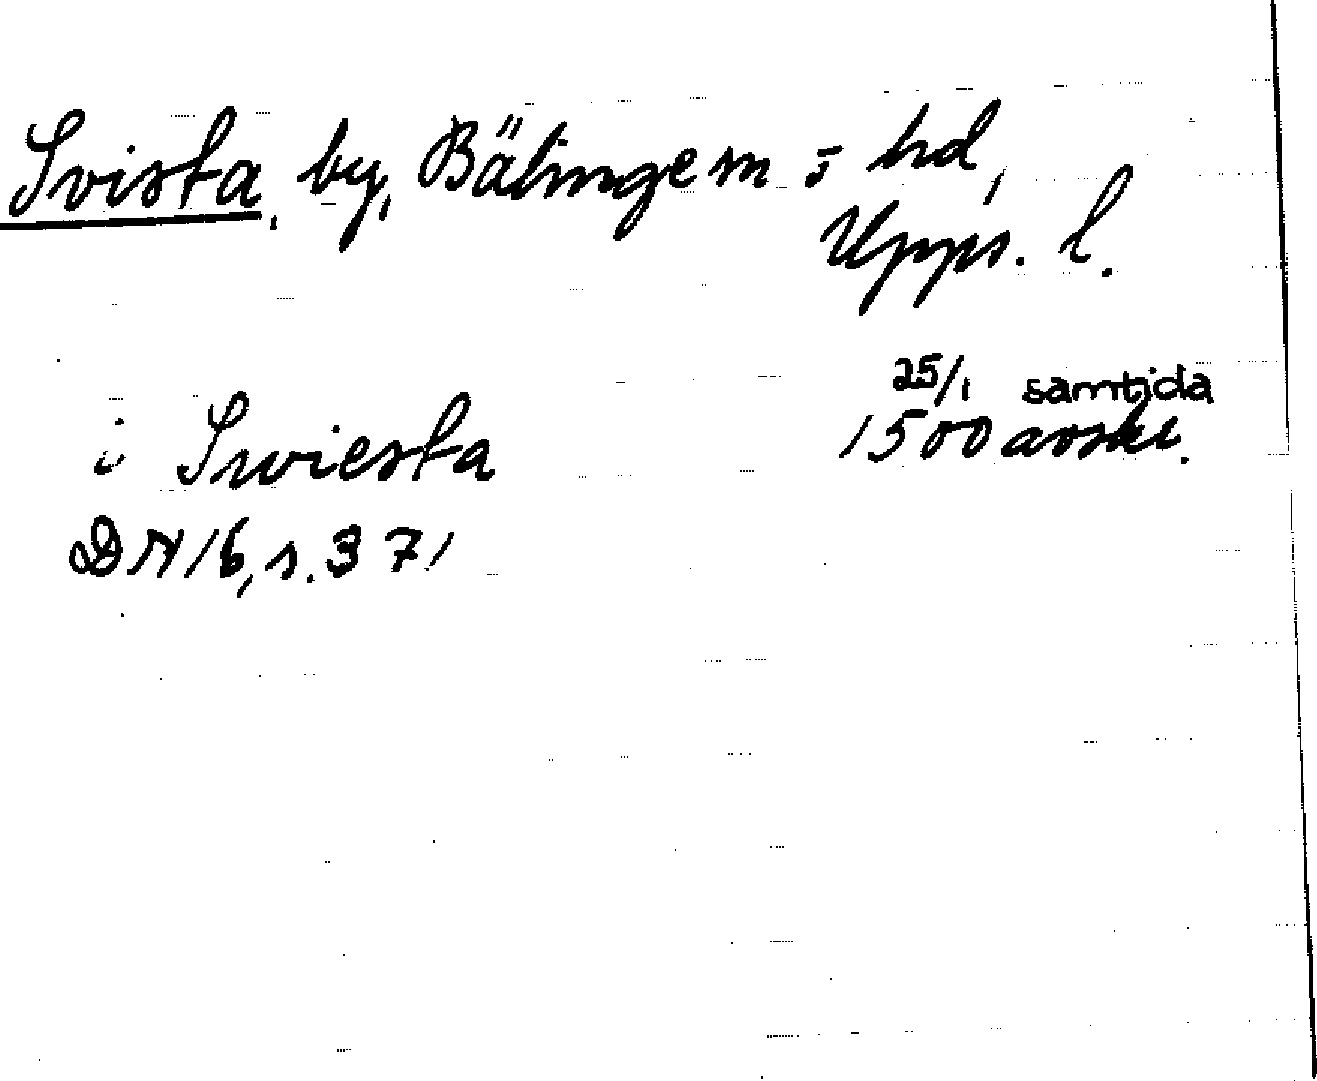 Svista, by, Bälinge sn o hd,
Upps. l.
25/1 samtida
i Swiesta 1500 avskr.
DN 16, s. 371